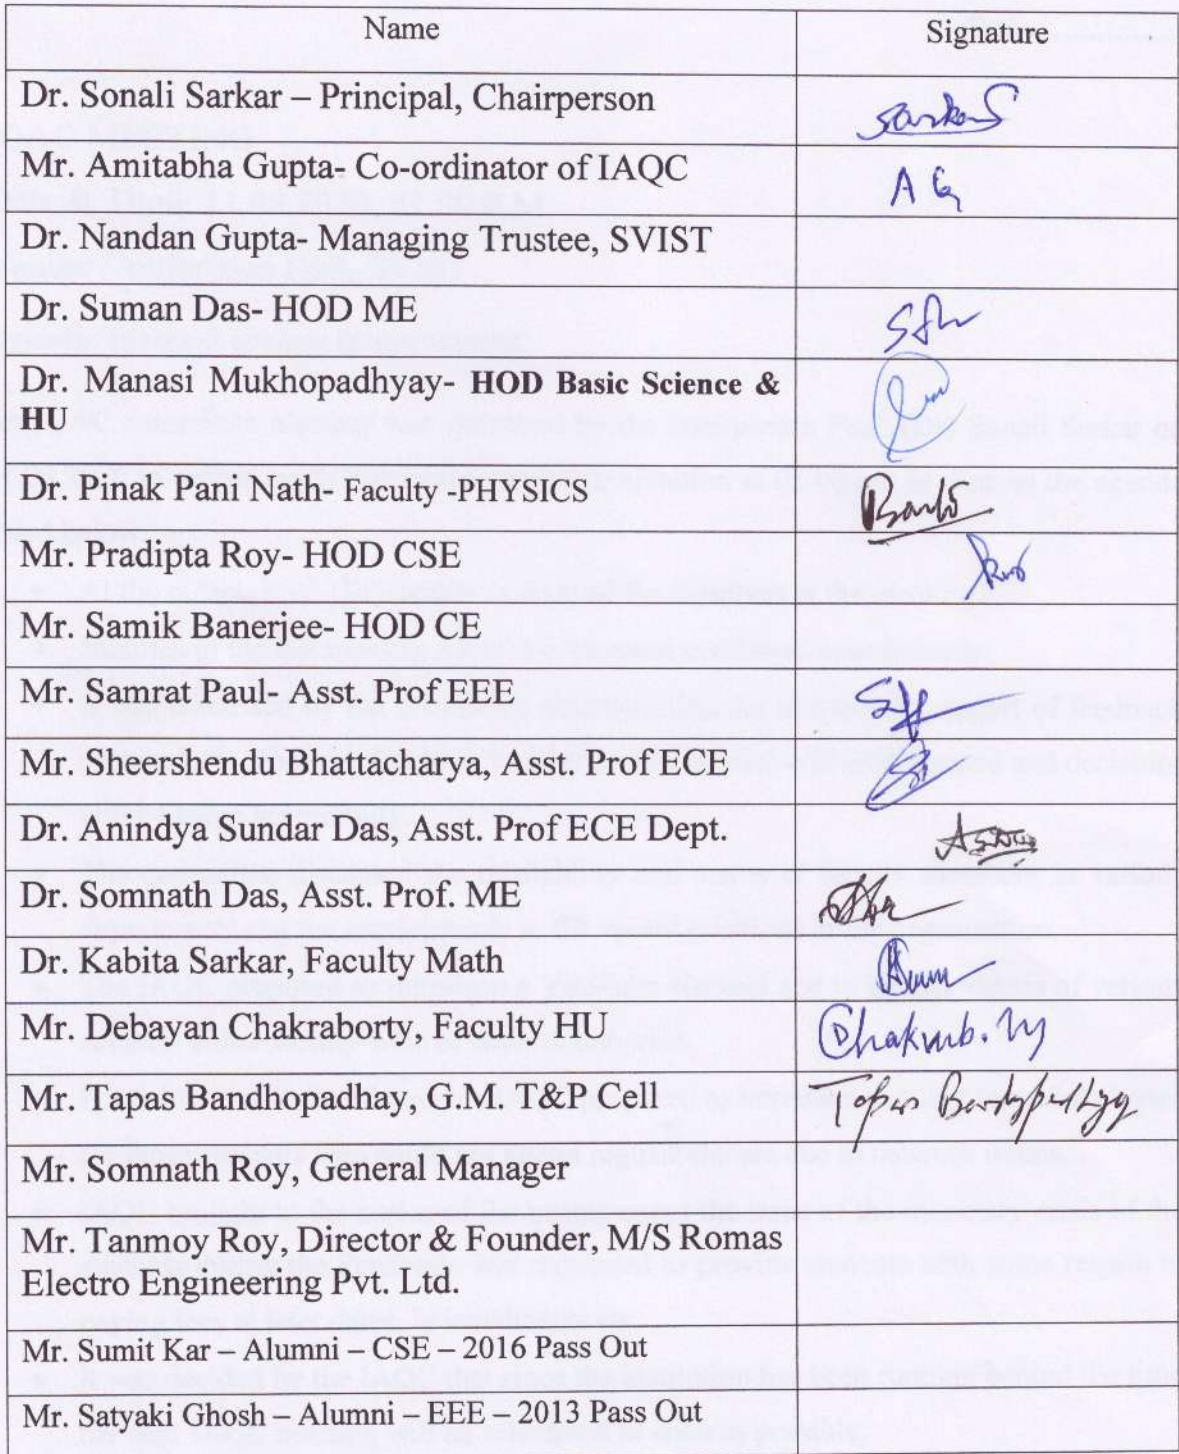 Name Signature
Dr. Sonali Sarkar – Principal, Chairperson Sarkar S
Mr. Amitabha Gupta- Co-ordinator of IAQC A G
Dr. Nandan Gupta- Managing Trustee, SVIST
Dr. Suman Das- HOD ME
Dr. Manasi Mukhopadhyay- HOD Basic Science &
HU
Dr. Pinak Pani Nath- Faculty -PHYSICS
Mr. Pradipta Roy- HOD CSE
Mr. Samik Banerjee- HOD CE
Mr. Samrat Paul- Asst. Prof EEE
Mr. Sheershendu Bhattacharya, Asst. Prof ECE
Dr. Anindya Sundar Das, Asst. Prof ECE Dept.
Dr. Somnath Das, Asst. Prof. ME
Dr. Kabita Sarkar, Faculty Math
Mr. Debayan Chakraborty, Faculty HU
Mr. Tapas Bandhopadhay, G.M. T&P Cell
Mr. Somnath Roy, General Manager
Mr. Tanmoy Roy, Director & Founder, M/S Romas
Electro Engineering Pvt. Ltd.
Mr. Sumit Kar – Alumni – CSE – 2016 Pass Out
Mr. Satyaki Ghosh – Alumni – EEE – 2013 Pass Out